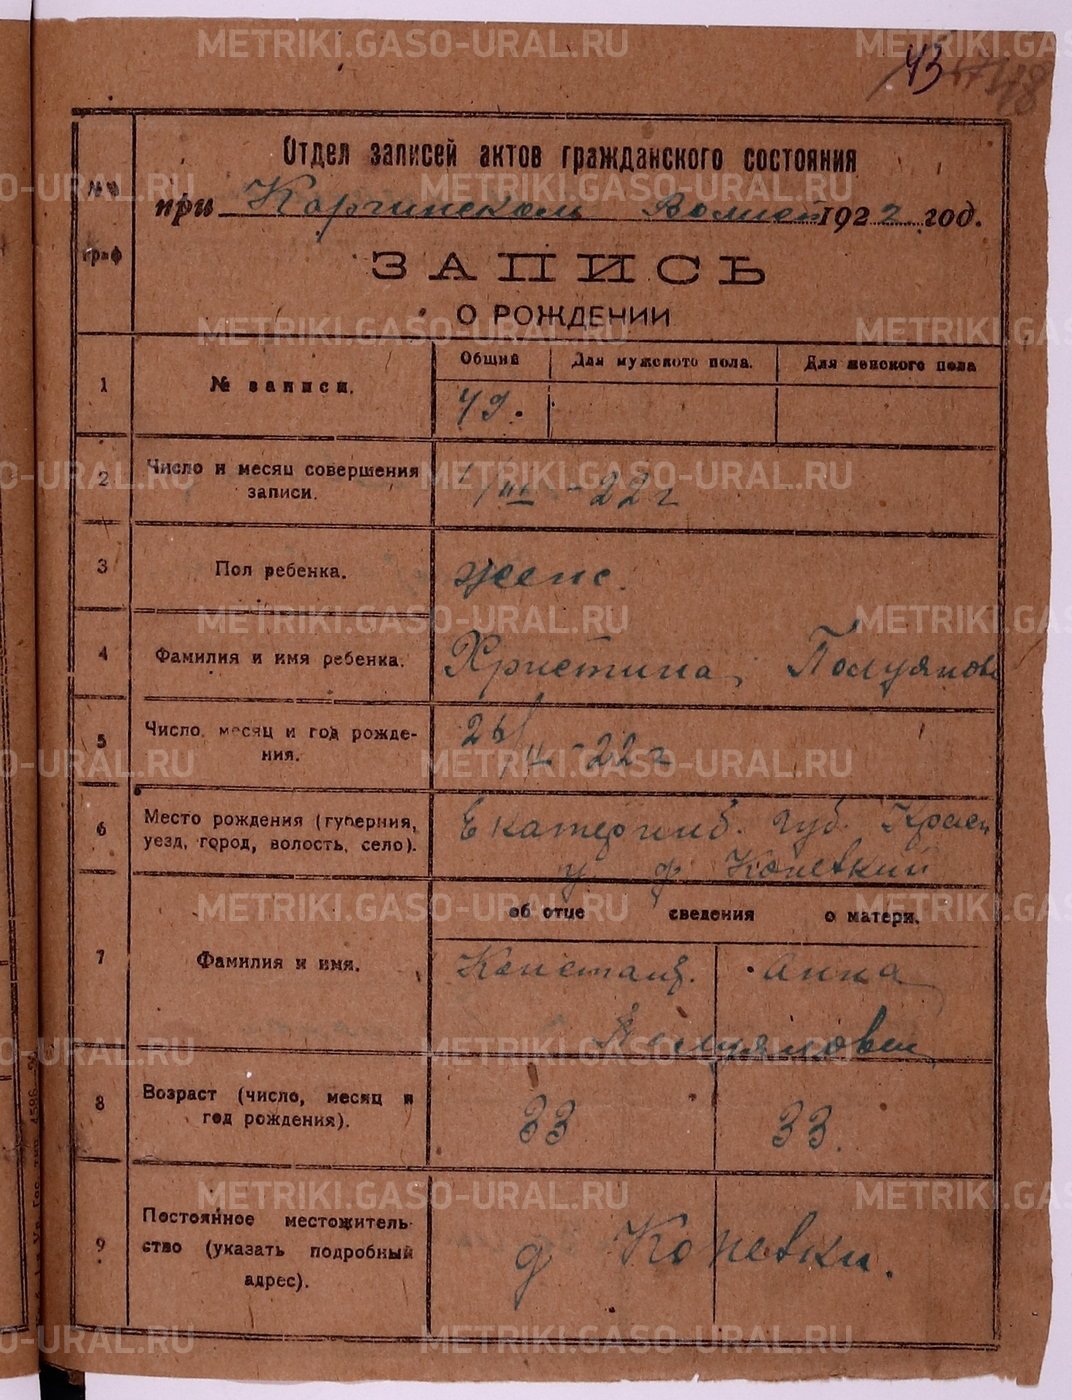 43
48
Отдел записей актов гражданского состояния
при Корчинском Волисп 1922 год.
№№ граф
ЗАПИСЬ
О РОЖДЕНИИ
Общий Для мужского пола. Для женского пола
1 № записи. 49.
2 Число и месяц совершения
записи. 1/III - 22 г
3 Пол ребенка. женс.
4 Фамилия и имя ребенка. Христина, Полуянова
5 Число, месяц и год рожде-
ния. 26/II - 22 г
6 Место рождения (губерния, Екатеринб. губ. Красн
уезд, город, волость, село). у д Копевкии
об отце сведения о матери.
7 Фамилия и имя. Констант. Анна
Полуяновы
8 Возраст (число, месяц и
год рождения). 33 33.
9 Постоянное местожитель-
ство (указать подробный д Копевки.
адрес).
METRIKI.GASO-URAL.RU